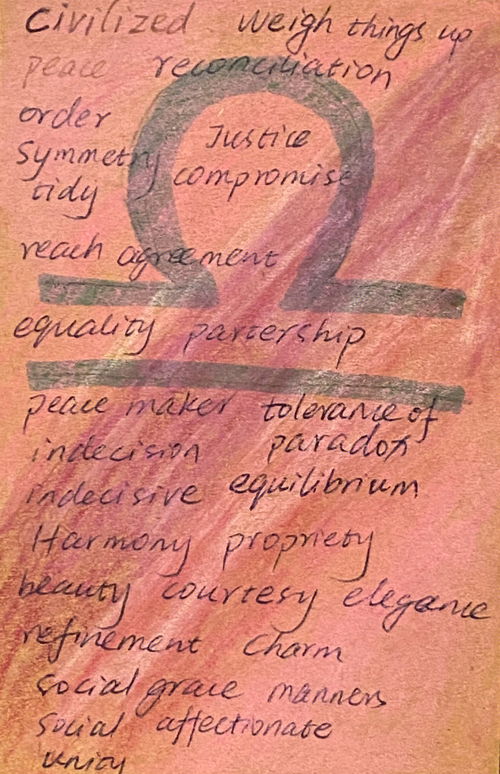 Civilized weigh things up
peace reconciliation
order
Justice
Symmetry
tidy compromise
reach agreement
equality partership
peace maker tolerance of
indecision paradox
indecisive equilibrium
Harmony propriety
beauty courtesy elegance
refinement Charm
social grace manners
social affectionate
unity